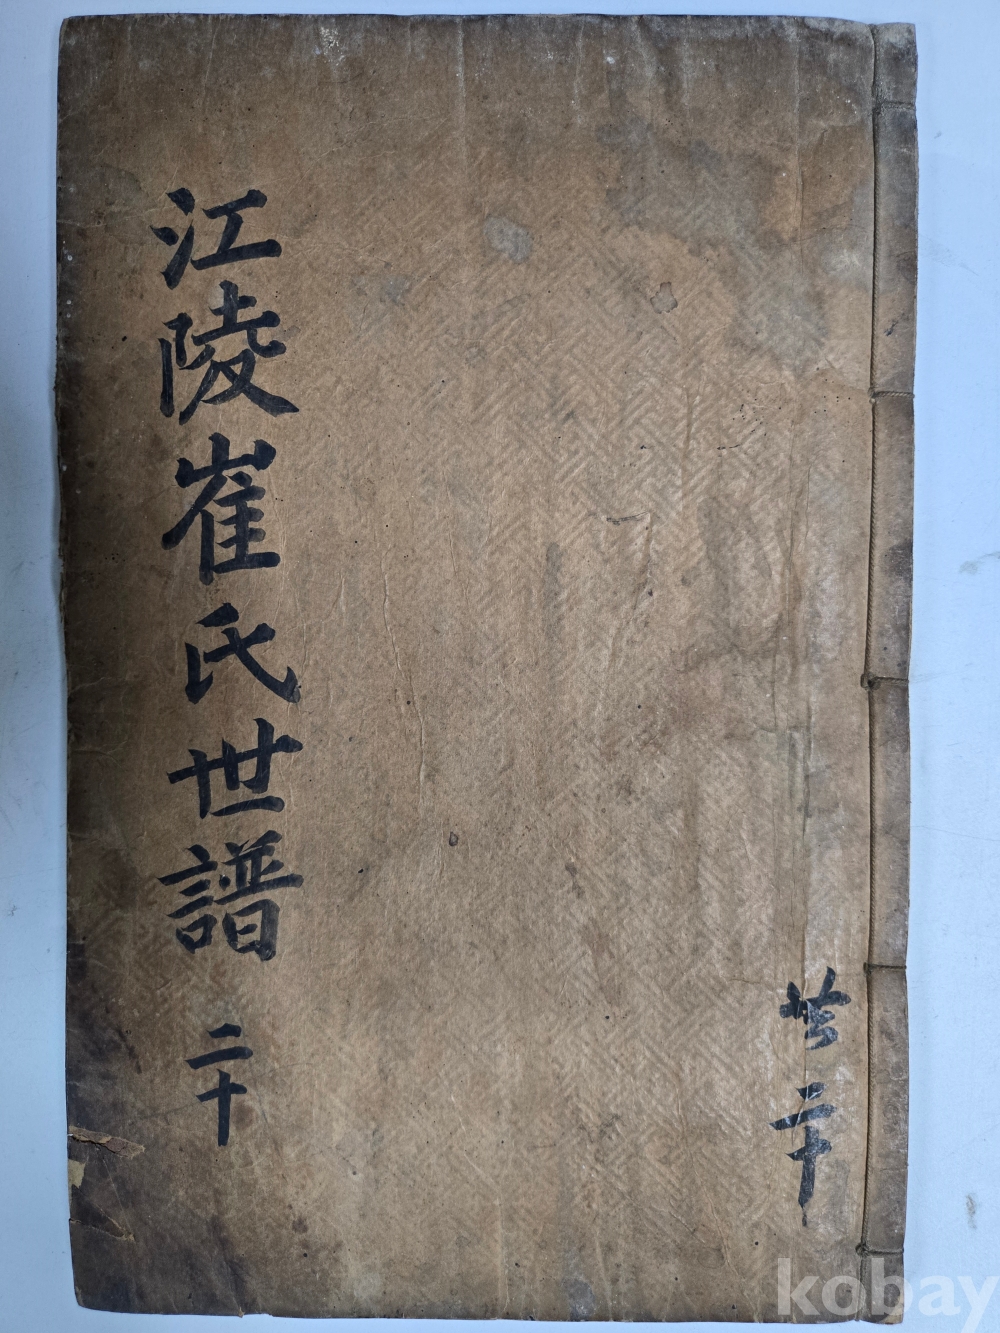 江陵崔氏世譜 二十
共二十
kobay